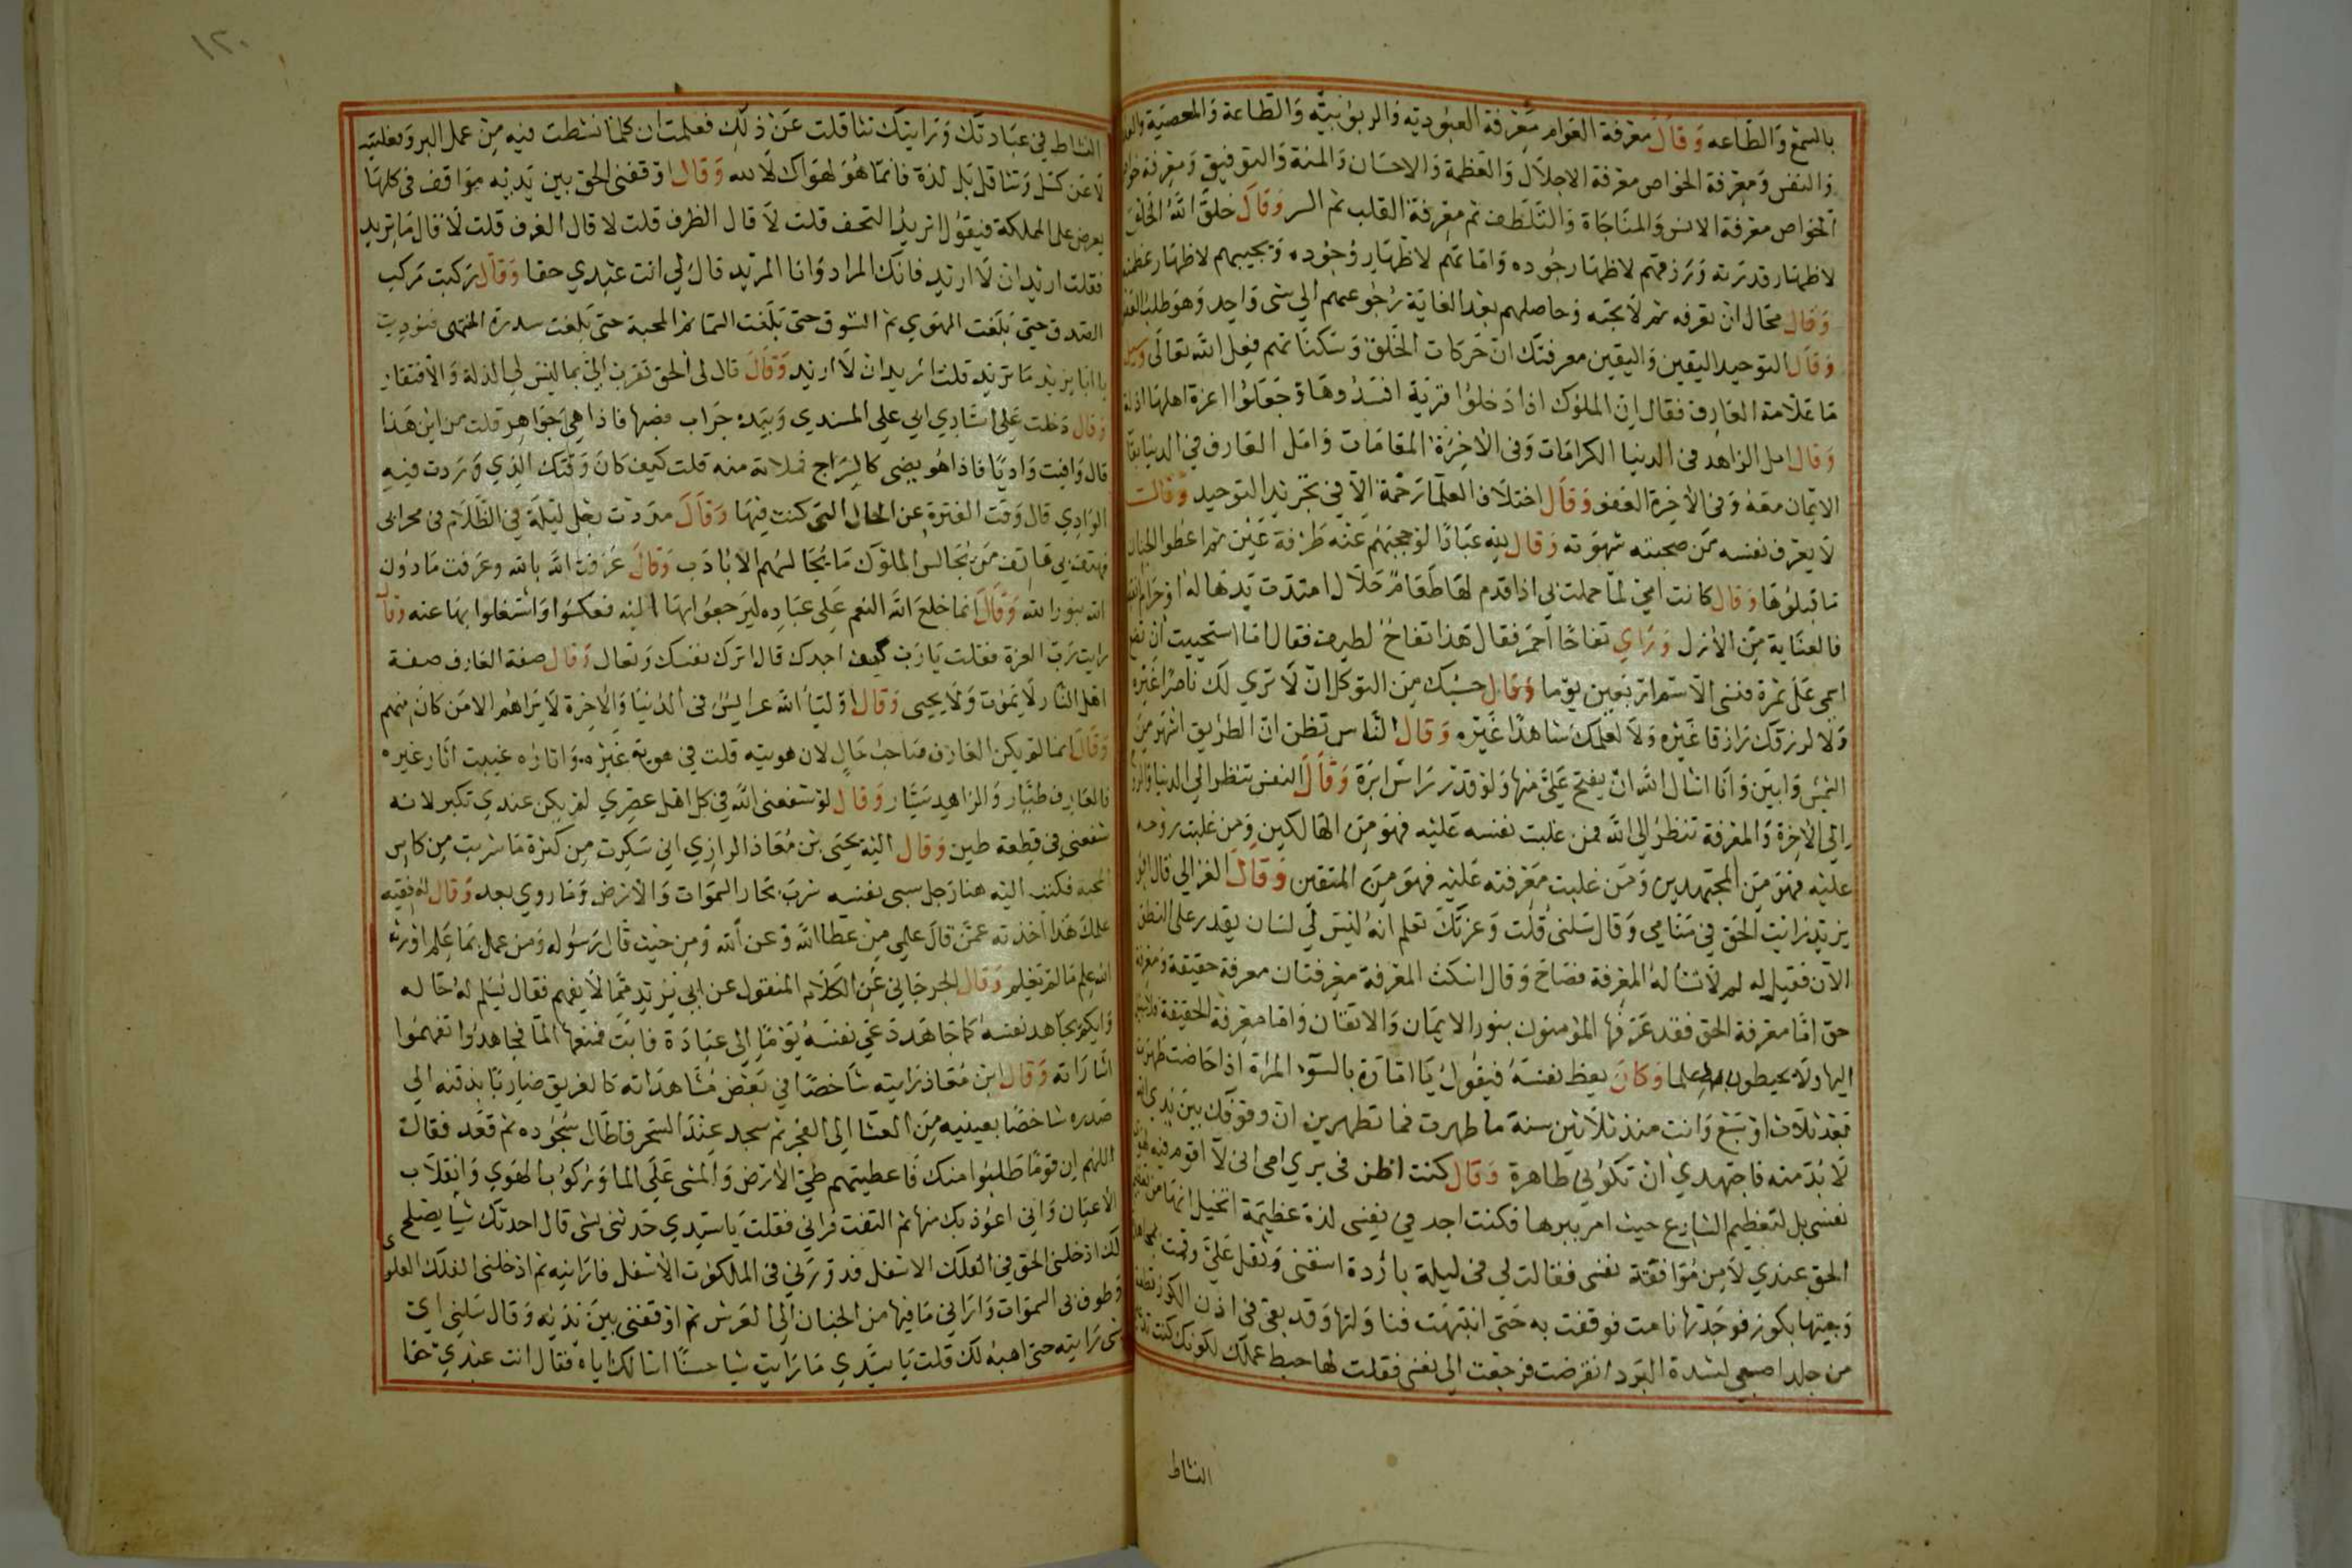 بالسمع والطاعه وقال معرفة العوام معرفة العبودية والربوبية والطاعة والمعصية
والنفس ومعرفة الخواص معرفة الاجلال والعظمة والاحسان والمنة والتوفيق ومعرفة
الخواص معرفة الانس والمناجاة والتلطف ثم معرفة القلب ثم السر وقال خلق الله الخلق
لاظهار قدرته ورزقهم لاظهار جوده واماتهم لاظهار وجوده ويجيبهم لاظهار عظمته
وقال محال ان تعرفه ثم لا تحبه وحاصلهم بعد الغاية رجوعهم الي شى واحد وهو طلب العفو
وقال التوحيد اليقين واليقين معرفتك ان حركات الخلق وسكناتهم فعل الله تعالى وسيل
ما علامة العارف فقال ان الملوك اذا دخلوا قرية افسدوها وجعلوا اعزة اهلها اذلة
وقال امل الزاهد فى الدنيا الكرامات وفى الاخرة المقامات وامل العارف في الدنيا بقا
الايمان معه وفى الاخرة العفو وقال اختلاف العلما رحمة الا في تجريد التوحيد وقال
لا يعرف نفسه من صحبته شهوته وقال لله عبادا لو حجبتهم عنه طرفة عين ثم اعطوا الجنان
ما قبلوها وقال كانت امي لما حملت بي اذا قدم لها طعام حلال امتدت يدها له او حرام
فالعناية من الازل وراي تفاحا احمر فقال هذا تفاح لطيف فقال اما استحييت ان تضع
اسمى على ثمرة فنسى الاسم اربعين يوما وقال حسبك من التوكل ان لا تري لك ناصرا غيره
ولا لرزقك رازقا غيره ولا لعلمك شاهدا غيره وقال الناس تظن ان الطريق اشهر من
الشمس وابين وانا اسال الله ان يفتح علي منها ولو قدر راس ابرة وقال النفس تنظر الي الدنيا والروح
الي الاخرة والمعرفة تنظر الي الله فمن غلبت نفسه عليه فهو من الهالكين ومن غلبت روحه
عليه فهو من المجتهدين ومن غلبت معرفته عليه فهو من المتقين وقال الغزالي قال ابو
يزيد رايت الحق في منامي وقال سلنى قلت وعزتك تعلم انه ليس لي لسان يقدر على النطق
الان فقيل له لم لا تسأله المعرفة فصاح وقال اسكت المعرفة معرفتان معرفة حقيقة ومعرفة
حق اما معرفة الحق فقد عرفها المؤمنون بنور الايمان والاتقان واما معرفة الحقيقة فلا سبيل
اليها ولا يحيطون به علما وكان يعظ نفسه فيقول يا امارة بالسوء المراة اذا حاضت طهرت
بعد ثلاث او تسع وانت منذ ثلاثين سنة ما طهرت فما تطهرين ان وقوفك بين يدي الله
لا بد منه فاجتهدي ان تكوني طاهرة وقال كنت اظن فى بري امى انى لا اقوم فيه
نفسى بل لتعظيم الشارع حيث امر ببرها فكنت اجد في نفسى لذة عظيمة اتخيل انها من تعظيم
الحق عندي لا من موافقة نفسى فقالت لي فى ليلة باردة اسقنى وثقل علي وقمت
وجيتها بكوز فوجدتها نامت فوقفت به حتى انتبهت فناولتها وقد بقى فى اذن الكوز
من جلد اصبعي لشدة البرد انقرضت فرجعت الي نفسى فقلت لها حبط عملك لكونك كنت
النشاط
١٢٠
النشاط في عبادتك ورايتك تثاقلت عن ذلك فعلمت ان كلما نشطت فيه من عمل البر وفعلته
لا عن كسل وتثاقل بل لذة فانما هو لهواك لا لله وقال اوقفنى الحق بين يديه مواقف فى كلها
يعرض على المملكة فيقول اتريد التحف قلت لا قال الظرف قلت لا قال الغرف قلت لا فقال ما تريد
فقلت اريد ان لا اريد فانك المراد وانا المريد قال لي انت عبدي حقا وقال ركبت مركب
الصدق حتى بلغت الهوي ثم الشوق حتى بلغت السما ثم المحبة حتى بلغت سدرة المنتهى فنوديت
يا ابا يزيد ما تريد قلت اريد ان لا اريد وقال قال لى الحق تقرب الي بما ليس لي الذلة والافتقار
وقال دخلت على استادي ابي علي السندي وبيده جراب فصبها فاذا هي جواهر قلت من اين هذا
قال وافيت واديا فاذا هو يضى كالسراج فملاته منه قلت كيف كان وقتك الذي وردت فيه
الوادي قال وقت الفترة عن الحال التى كنت فيها وقال مددت رجلي ليلة في الظلام فى محرابى
فهتف بي هاتف من يجالس الملوك ما يجالسهم الا بادب وقال عرفت الله بالله وعرفت ما دون
الله بنور الله وقال انما خلع الله النعم على عباده ليرجعوا بها اليه فعكسوا واشتغلوا بها عنه وقال
رايت رب العزة فقلت يا رب كيف اجدك قال اترك نفسك وتعال وقال صفة العارف صفة
اهل النار لا يموت ولا يحيى وقال اولياء الله عرايس فى الدنيا والاخرة لا يراهم الا من كان منهم
وقال انما لم يكن العارف صاحب حال لان هويته قلت في هوية غيره واثاره غيبت اثار غيره
فالعارف طيار والزاهد سيار وقال لو شفعنى الله في كل اهل عصري لم يكن عندي تكبر لانه
شفعنى فى قطعة طين وقال اليه يحيى بن معاذ الرازي اني سكرت من كثرة ما شربت من كاس
المحبة فكتب اليه هنا رجل سمى نفسه شرب بحار السموات والارض وما روي بعد وقال له فقيه
علمك هذا اخذته عمن قال علمي من عطا الله وعن الله ومن حيث قال رسوله ومن عمل بما علم اورثه
الله علم ما لم يعلم وقال الجرجاني عن الكلام المنقول عن ابي يزيد مما لا يفهم فقال نسلم له حاله
وايكم يجاهد نفسه كما جاهد دعى نفسه يوما الى عبادة فابت فمنعها الما فجاهدوا تفهموا
اشاراته وقال ابن معاذ رايته شاخصا في بعض مشاهداته كالغريق ضاربا بذقنه الي
صدره شاخصا بعينيه من العشا الي الفجر ثم سجد عند السحر فاطال سجوده ثم قعد فقال
اللهم ان قوما طلبوا منك فاعطيتهم طي الارض والمشى على الما وركوب الهوي وانقلاب
الاعيان واني اعوذ بك منها ثم التفت فراني فقلت يا سيدي حدثنى بشى قال احدثك شيا يصلح
لك ادخلنى الحق في الفلك الاسفل فدورني فى الملكوت الاسفل فارانيه ثم ادخلنى الفلك العلوي
وطوف بى السموات وارانى ما فيها من الجنان الي العرش ثم اوقفنى بين يديه وقال سلني اي
شى رايته حتى اهبه لك قلت يا سيدي ما رايت شيا حسنا اسالك اياه فقال انت عبدي حقا